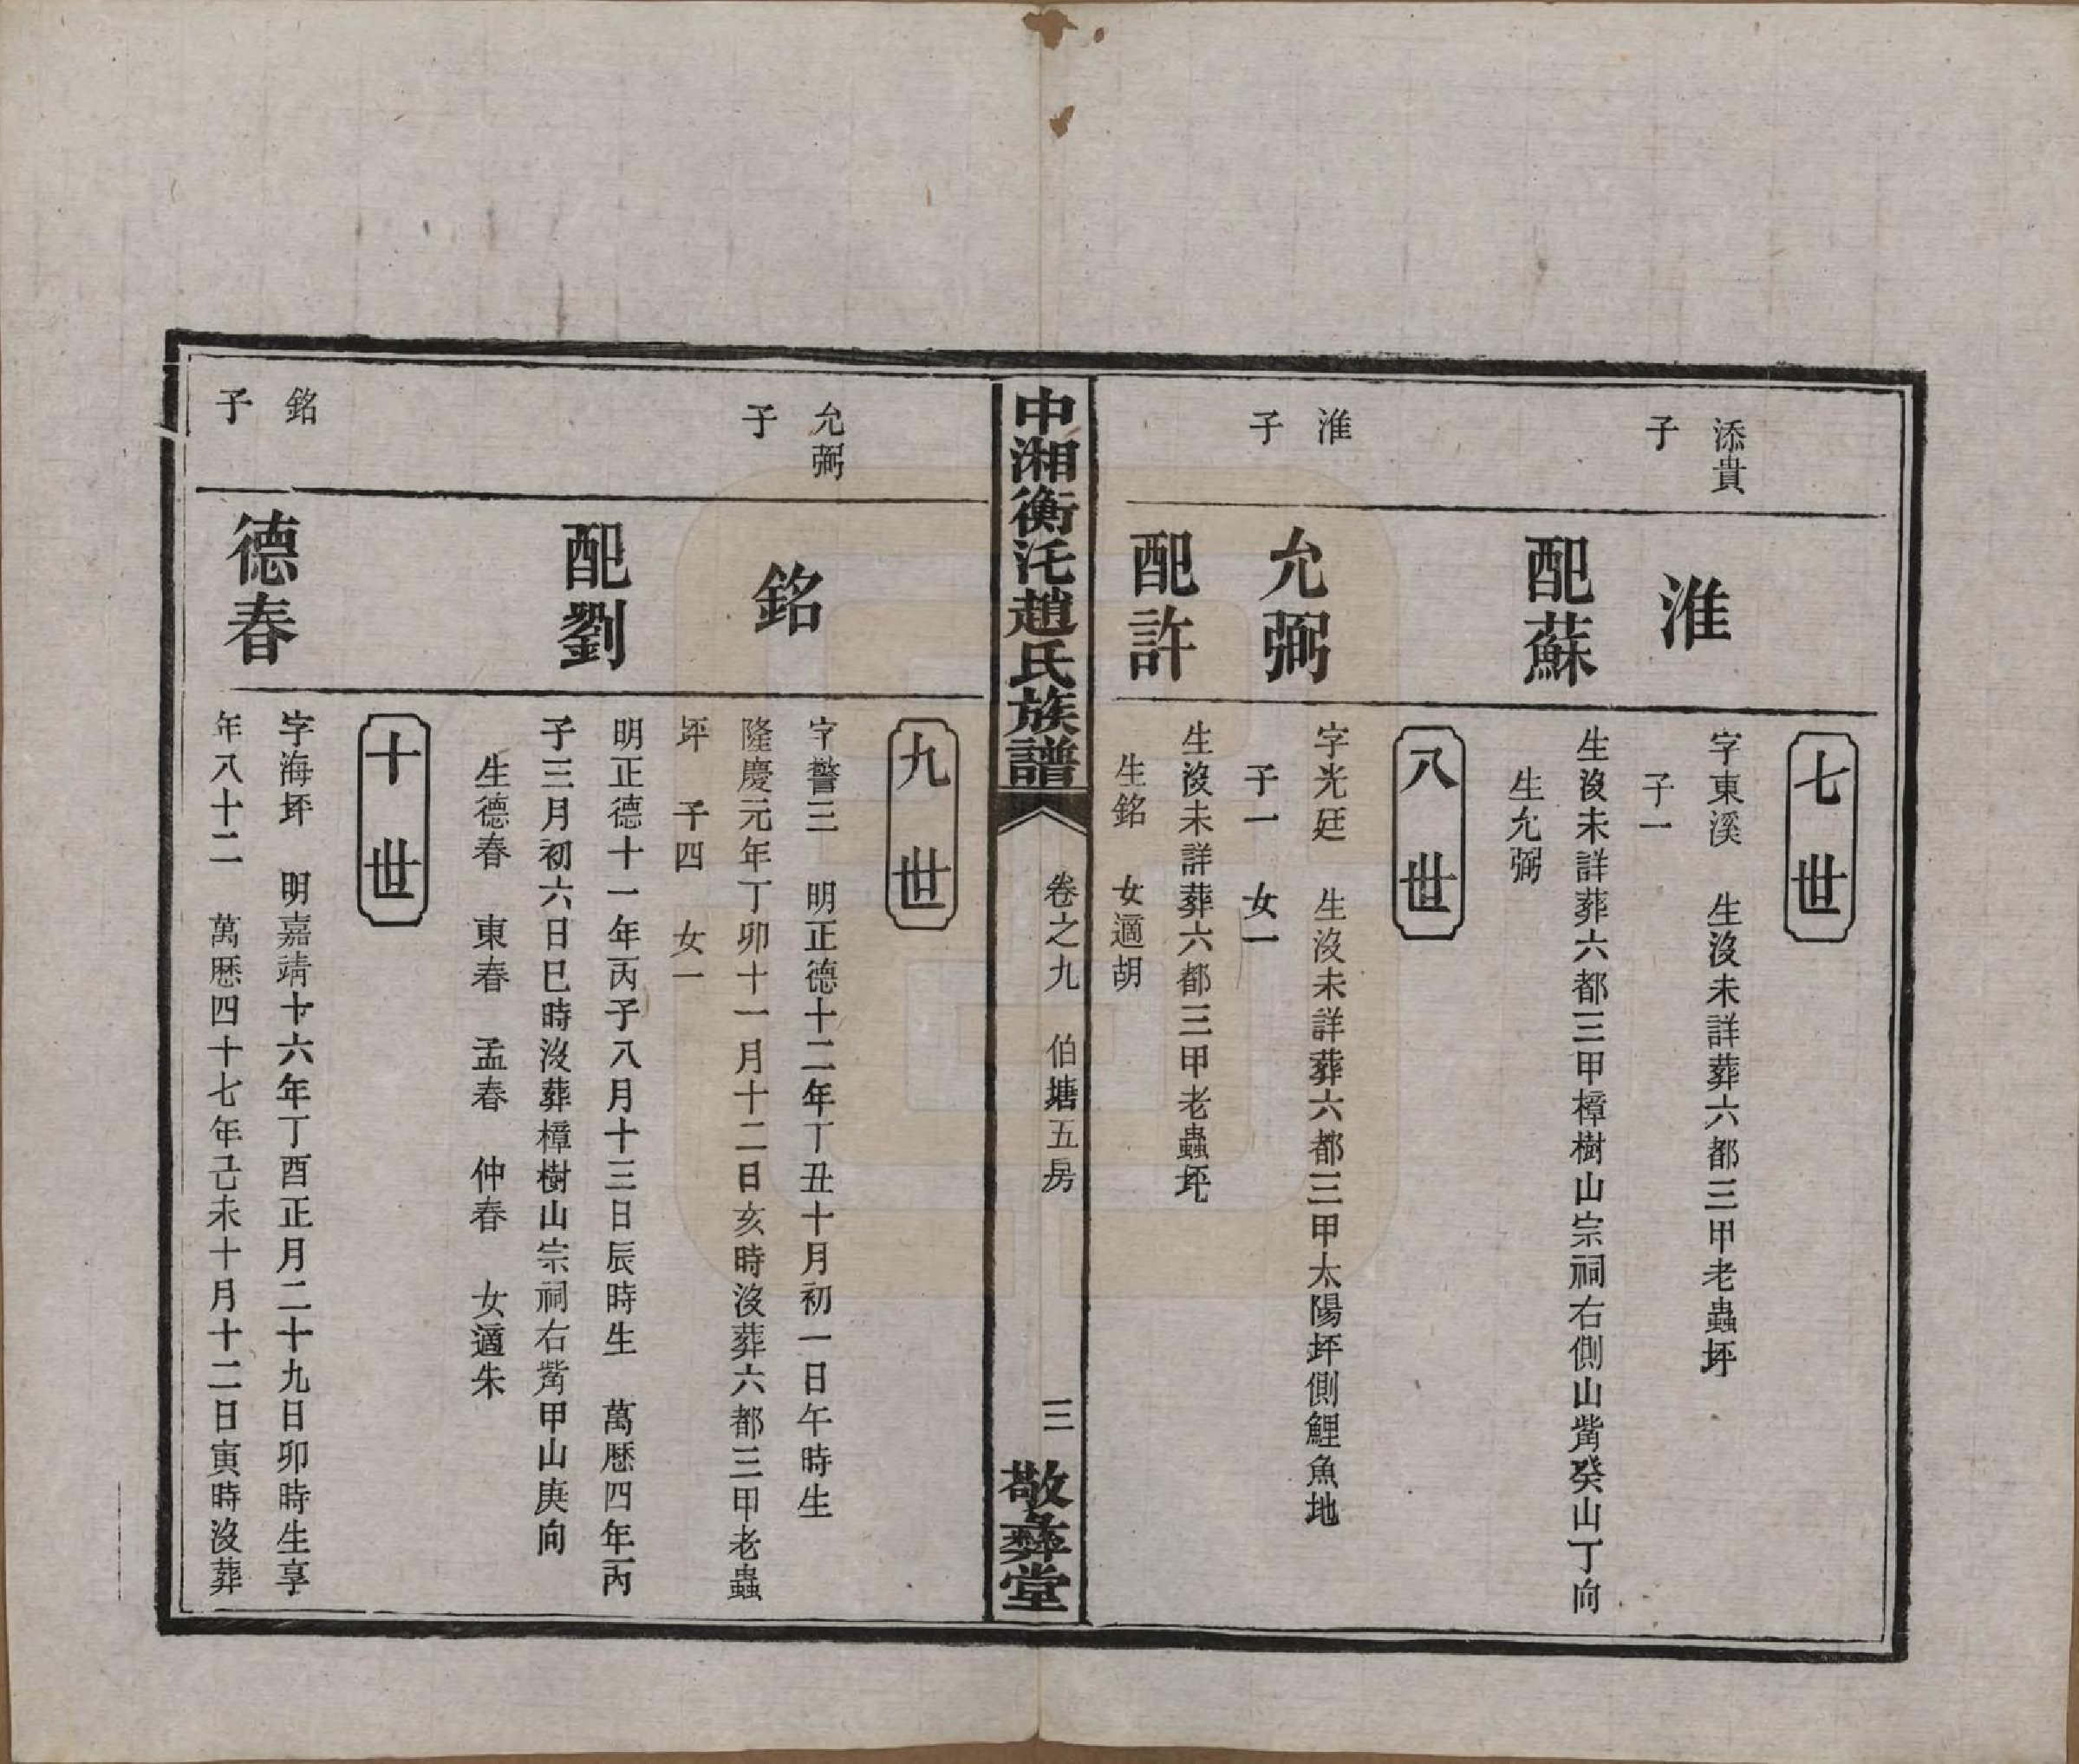 七世
添貴
子
淮
字東溪　生沒未詳葬六都三甲老蟲坪
子一
配蘇
生沒未詳葬六都三甲樟樹山宗祠右側山觜癸山丁向
生允弼
八世
淮
子
允弼
字光廷　生沒未詳葬六都三甲太陽坪側鯉魚地
子一　女一
配許
生沒未詳葬六都三甲老蟲坪
生銘　女適胡
中湘衡汑趙氏族譜
卷之九　伯塘五房
三
敬彝堂
九世
允弼
子
銘
字警三　明正德十二年丁丑十月初一日午時生
隆慶元年丁卯十一月十二日亥時沒葬六都三甲老蟲
坪　子四　女一
配劉
明正德十一年丙子八月十三日辰時生　萬厯四年丙
子三月初六日巳時沒葬樟樹山宗祠右觜甲山庚向
生德春　東春　孟春　仲春　女適朱
十世
銘
子
德春
字海坪　明嘉靖十六年丁酉正月二十九日卯時生享
年八十二　萬厯四十七年己未十月十二日寅時沒葬